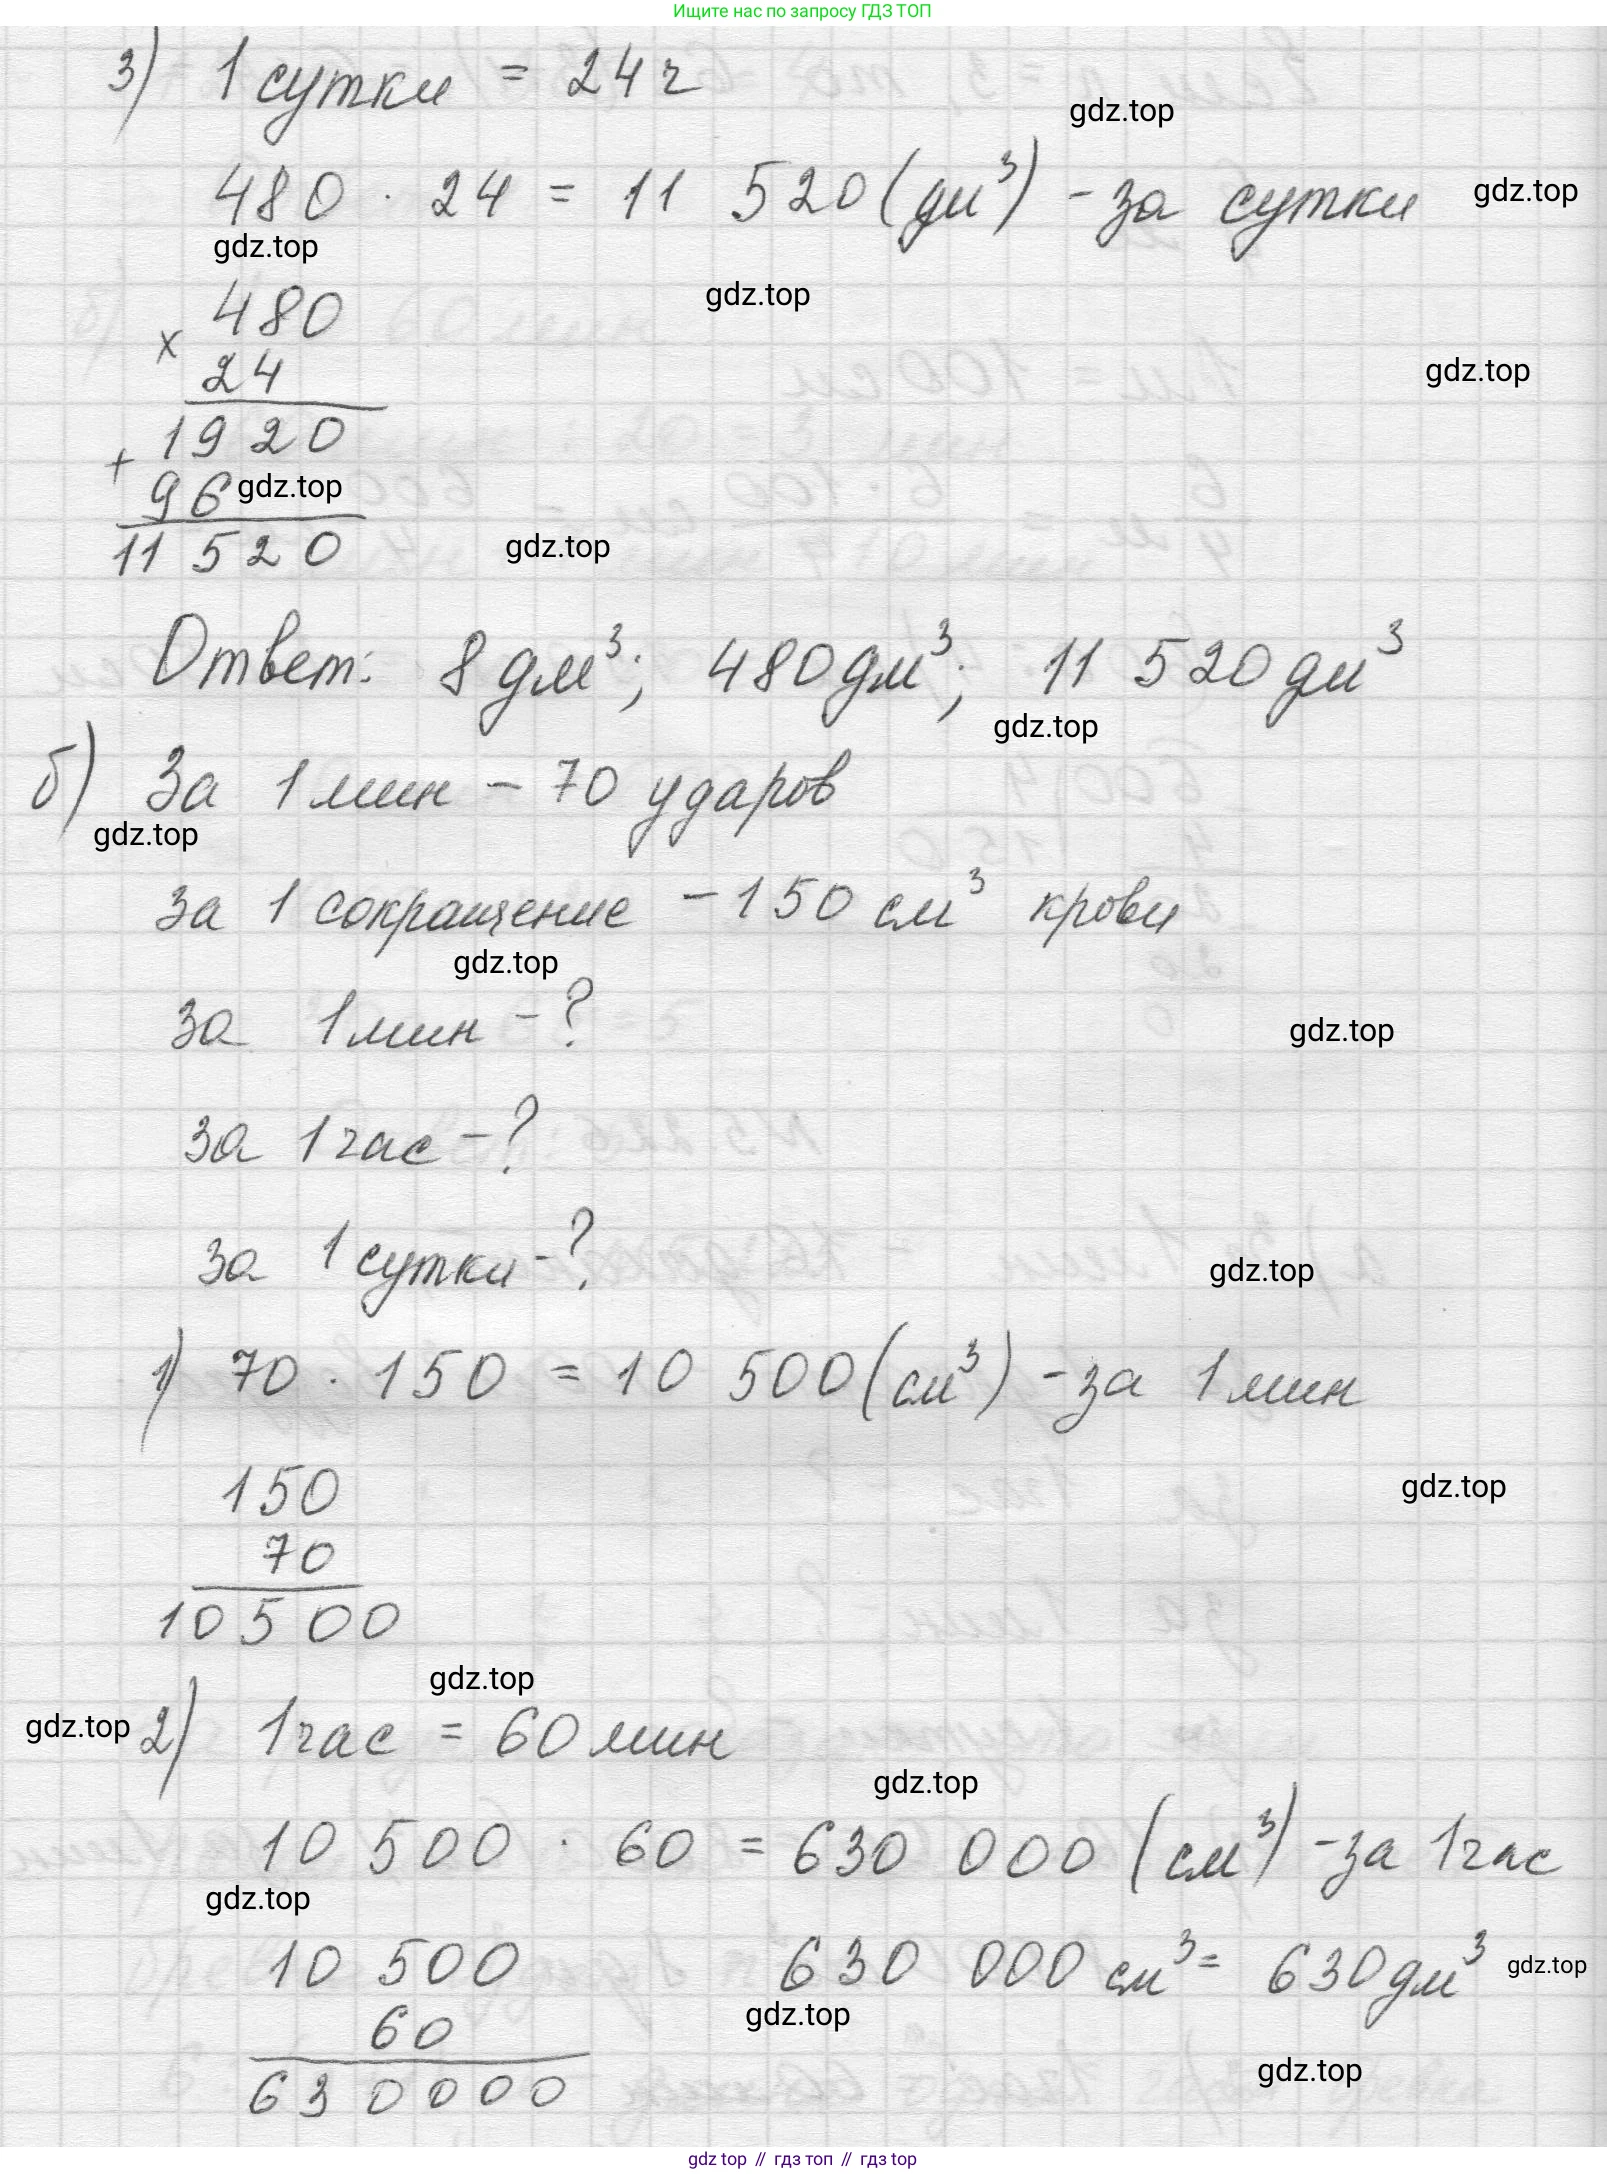 Ищите нас по запросу ГДЗ ТОП
3) 1 сутки = 24 ч
gdz.top
480 · 24 = 11 520 (дм³) - за сутки
gdz.top
gdz.top
gdz.top
480
×
24
gdz.top
1920
+
96
gdz.top
11 520
gdz.top
Ответ: 8 дм³; 480 дм³; 11 520 дм³
gdz.top
б) За 1 мин - 70 ударов
gdz.top
за 1 сокращение - 150 см³ крови
gdz.top
за 1 мин - ?
gdz.top
за 1 час - ?
за 1 сутки - ?
gdz.top
1) 70 · 150 = 10 500 (см³) - за 1 мин
150
gdz.top
70
10500
gdz.top
gdz.top
2) 1 час = 60 мин
gdz.top
10 500 · 60 = 630 000 (см³) - за 1 час
gdz.top
10 500
630 000 см³ = 630 дм³
gdz.top
60
gdz.top
gdz.top
630000
gdz top // гдз топ // gdz top